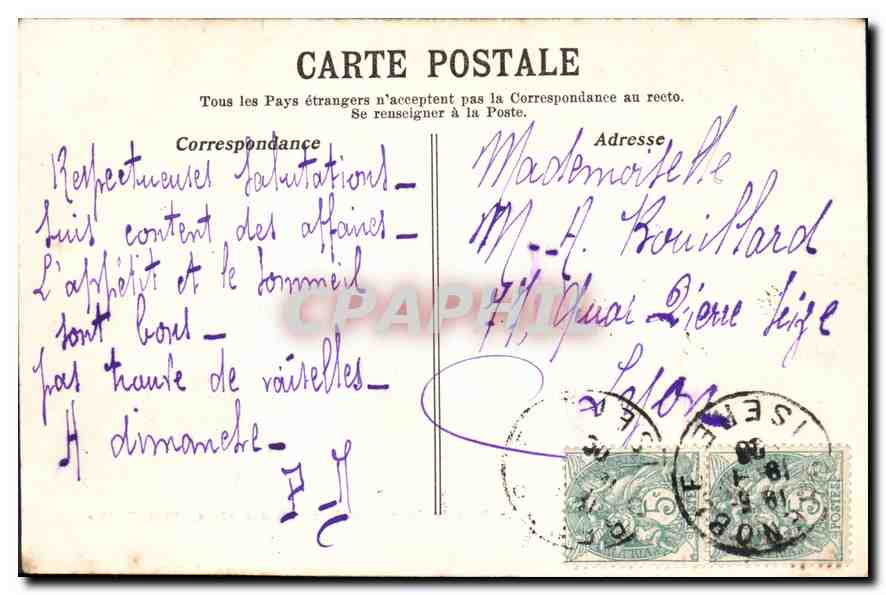 CARTE POSTALE
Tous les Pays étrangers n'acceptent pas la Correspondance au recto.
Se renseigner à la Poste.
Correspondance
Respectueuses Salutations_
Suis content des affaires_
L'appétit et le Sommeil
sont bons_
pas trouvé de vaisselles_
A dimanche_
P_M
Adresse
Mademoiselle
M_A. Bouillard
77, Quai Pierre Seize
Lyon
CPAPHIL
ISERE
5
5
POSTES